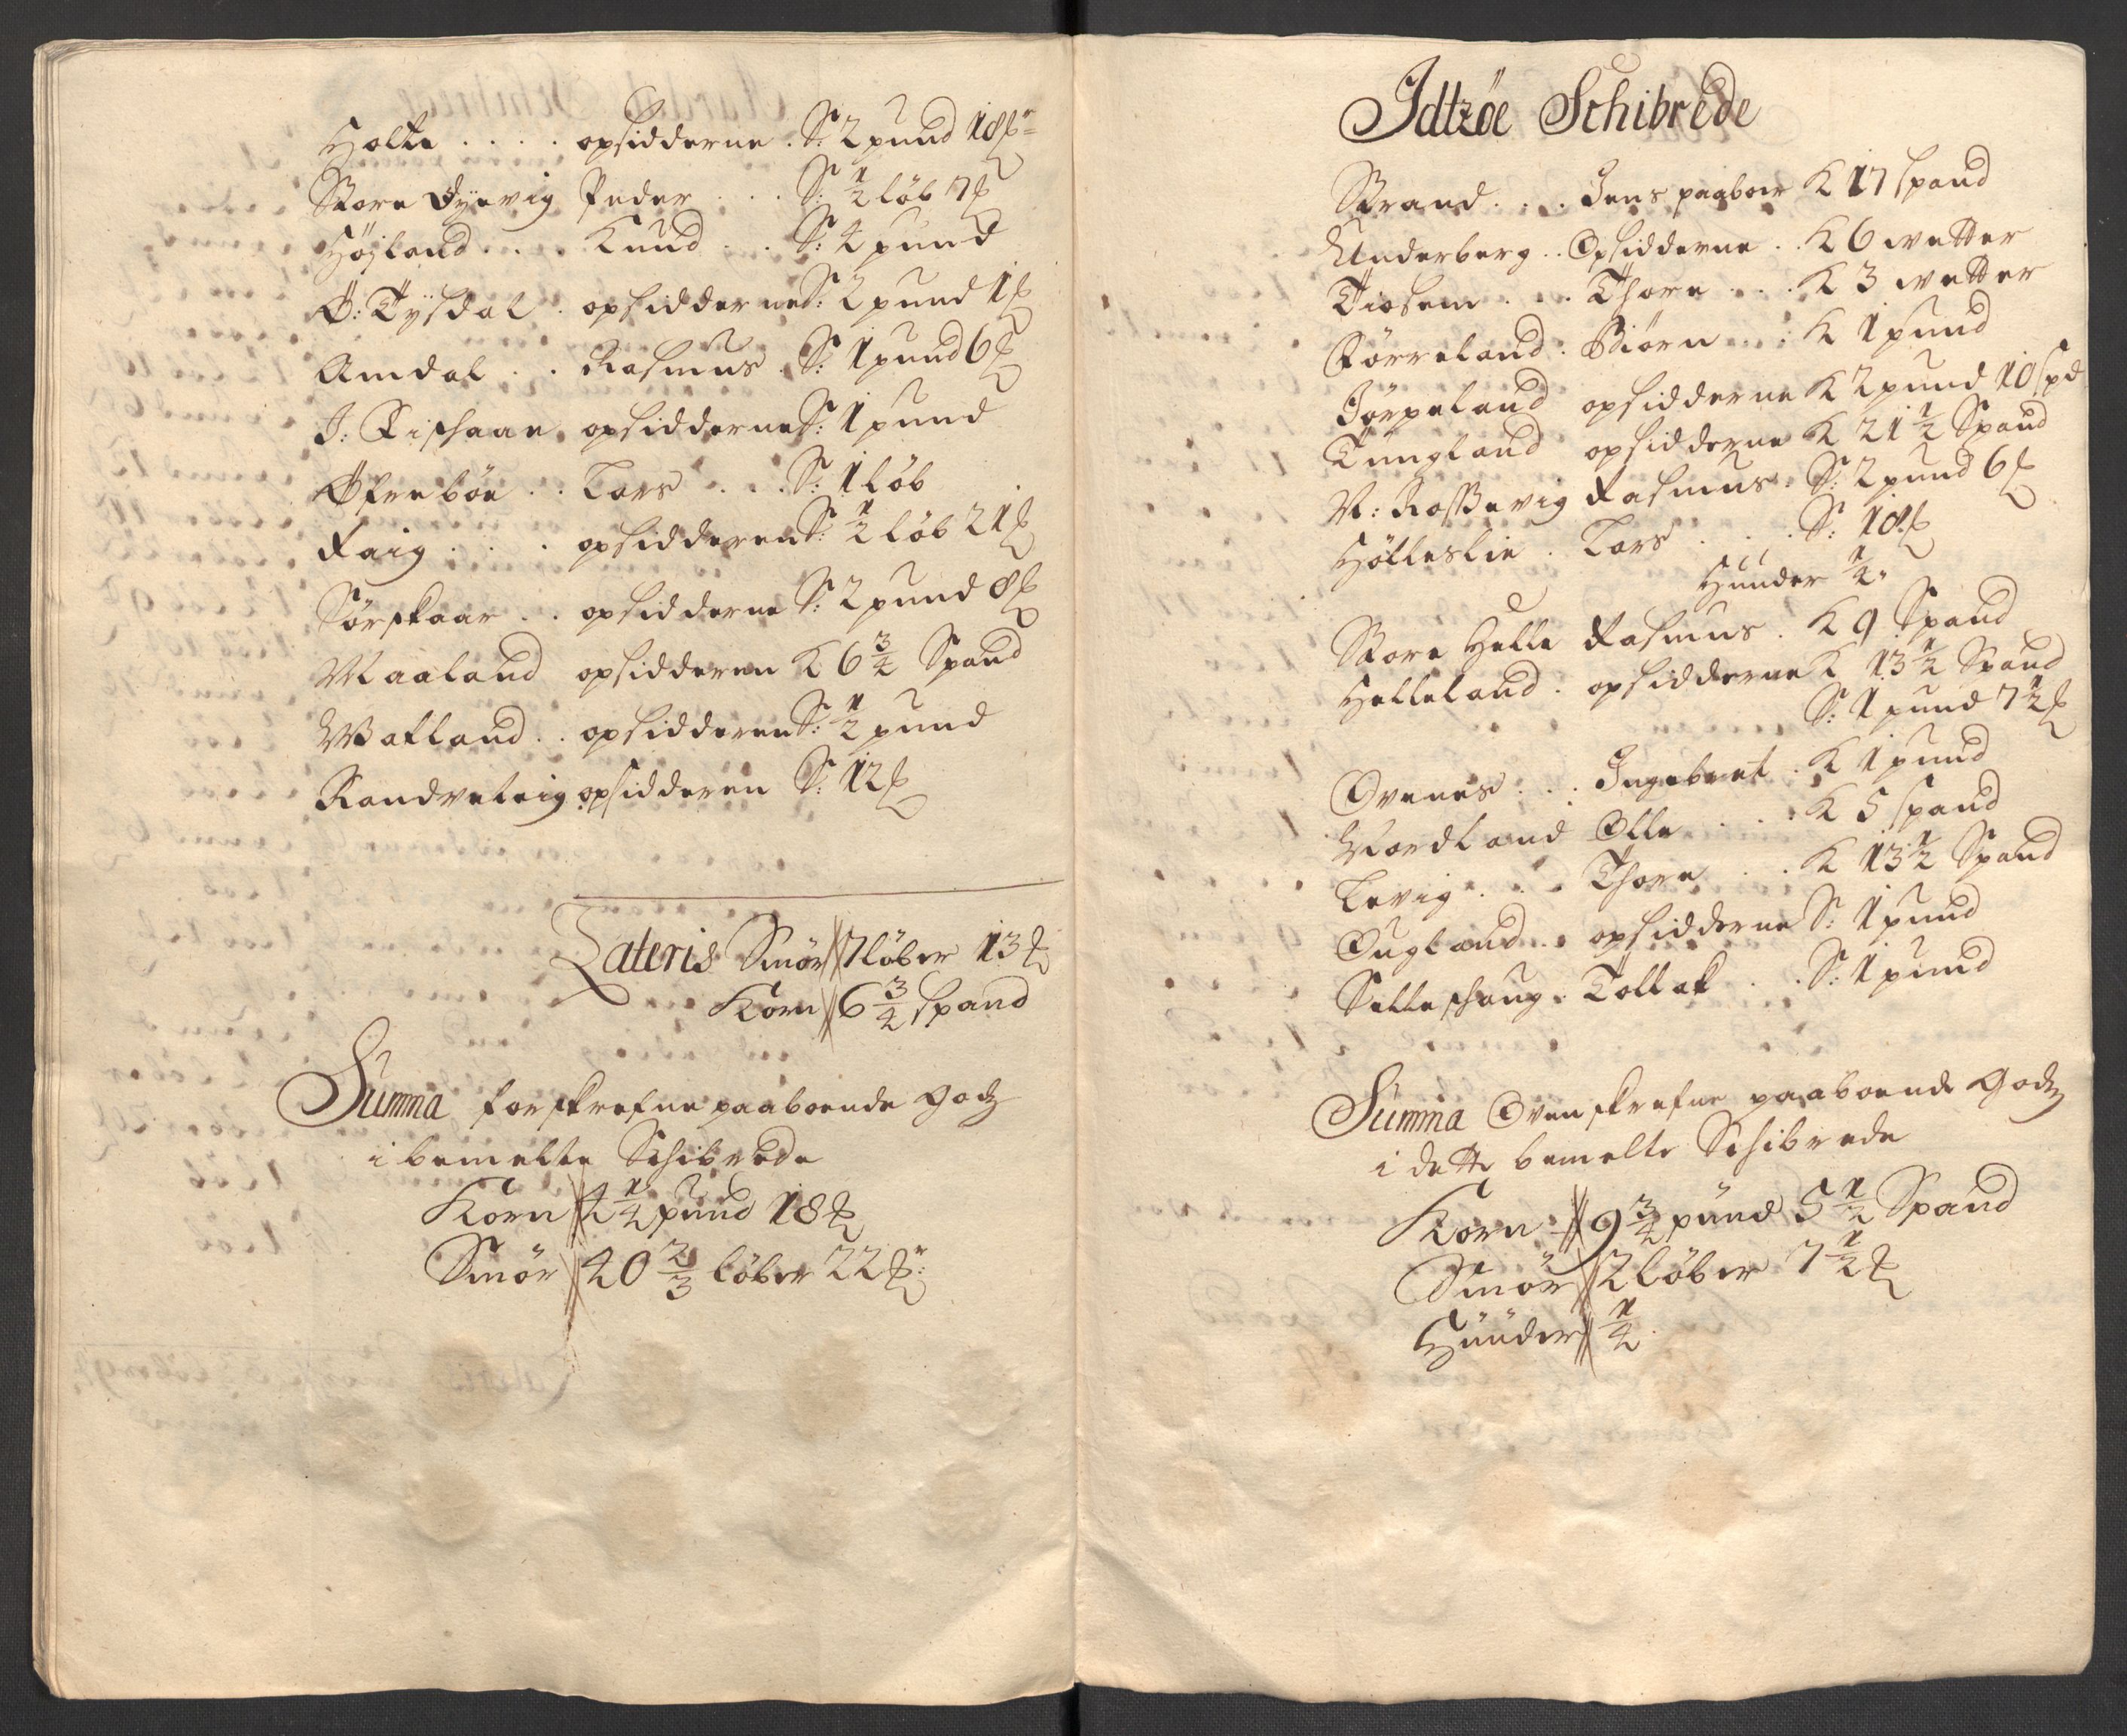 Holte . . . . opsidderne . S: 2 pund 18 ℔r
Store Dysvig Peder . . . S: 1/2 löb 7 ℔
Höjland . . . Knud . . S: 4 pund
Ö: Tÿsdal . opsidderne S: 2 pund 1 ℔
Amdal . . Rasmus . S: 1 pund 6 ℔
J: Fischaae opsidderne S: 1 pund
Öfreböe . . Lars . . . S: 1 löb
Faig . . . opsidderen S: 1/2 löb 21 ℔
Sörskaar . . opsidderne S: 2 pund 8 ℔
Maaland opsidderen K 6 3/4 Spand
Watland . . opsidderen S: 1/2 pund
Randveleig opsidderen S: 12 ℔
Lateris Smör 7 löber 13 ℔
Korn 6 3/4 spand
Summa forskrefne paaboende godz
i bemelte Schibrede
Korn 4 1/4 pund 18 ℔
Smör 40 2/3 löber 22 ℔r:
Jdtzöe Schibrede
Strand . . . Jens paaboer K 17 spand
Underberg . . Opsidderne . . K 6 wetter
Tiosem . . . Thore . . . K 3 wetter
Förreland . Biörn . . . K 1 pund
Jörpeland opsidderne K 2 pund 10 spd
Tungland opsidderne K 21 1/2 Spand
N: Rossevig Rasmus . S: 2 pund 6 ℔
Hölleslie . Lars . . . S: 18 ℔
Huuder 1/4
Store Helle Rasmus . K 9 Spand
Helleland . opsidderne K 13 1/2 Spand
S: 1 pund 7 1/2 ℔
Ovenes . . . Ingebret . K 1 pund
Nordland Olle . . . K 5 spand
Levig . . . Thore . . K 13 1/2 Spand
Ougland . . opsidderne S: 1 pund
Selleshaug . Tollak . . S: 1 pund
Summa Ovenskrefne paaboende Godz
i dette bemelte Schibrede
Korn 9 3/4 pund 5 1/2 Spand
Smör 2 löber 7 1/2 ℔
Huuder 1/4